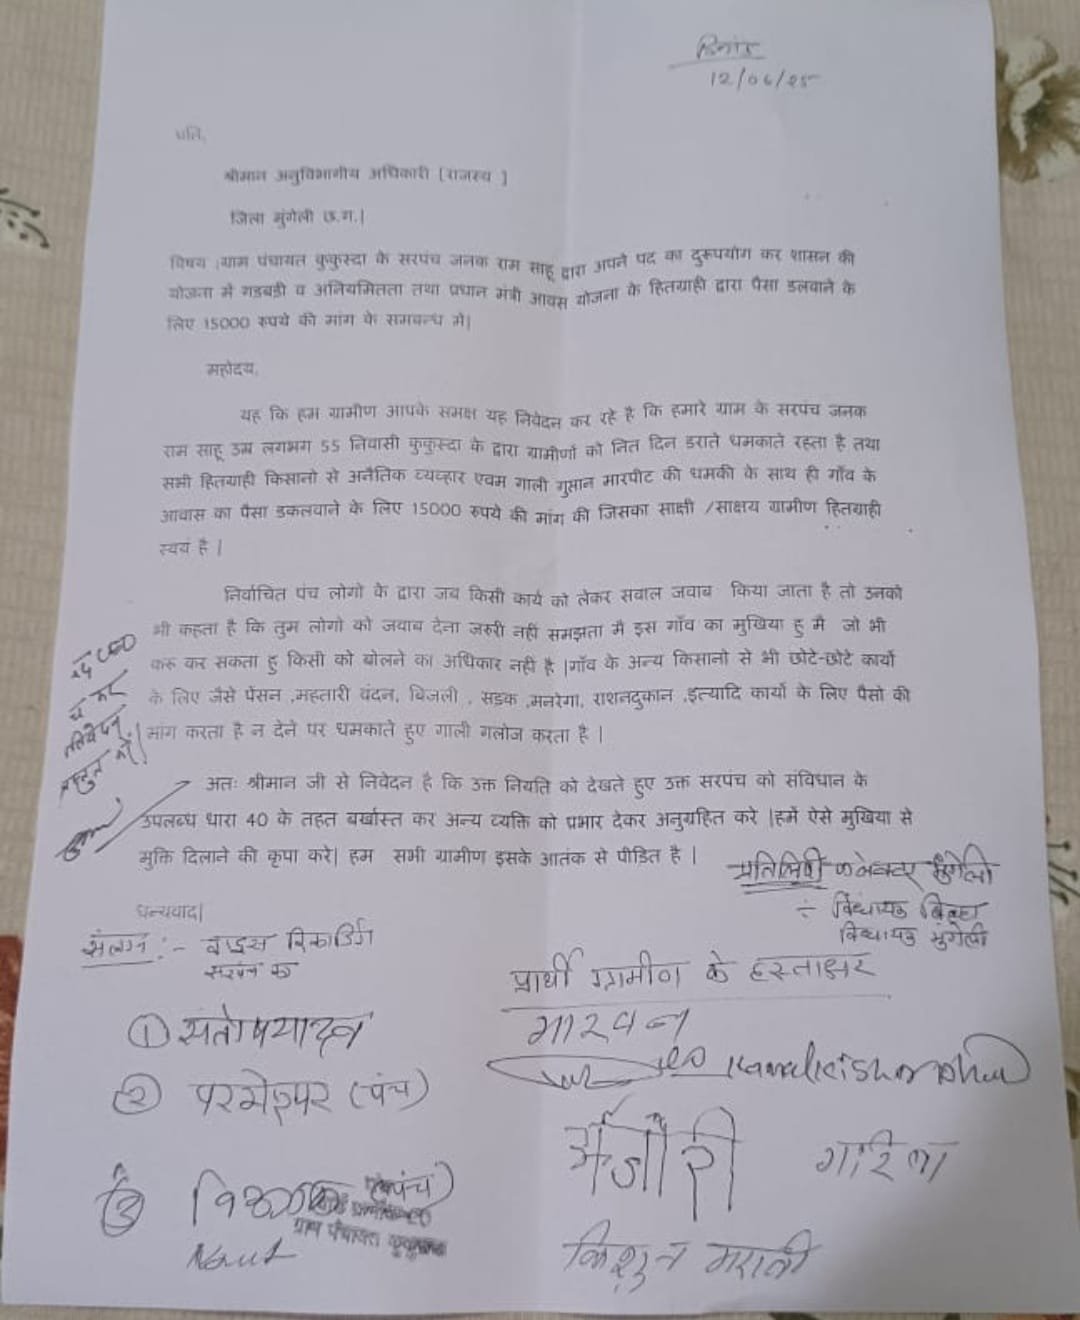 दिनांक
12/06/25
प्रति,
श्रीमान अनुविभागीय अधिकारी [राजस्व ]
जिला मुंगेली छ.ग.|
विषय :ग्राम पंचायत कुकुस्दा के सरपंच जनक राम साहू द्वारा अपने पद का दुरूपयोग कर शासन की
योजना में गडबडी व अनियमितता तथा प्रधान मंत्री आवास योजना के हितग्राही द्वारा पैसा डलवाने के
लिए 15000 रुपये की मांग के सम्बन्ध में|
महोदय,
यह कि हम ग्रामीण आपके समक्ष यह निवेदन कर रहे है कि हमारे ग्राम के सरपंच जनक
राम साहू उम्र लगभग 55 निवासी कुकुस्दा के द्वारा ग्रामीणों को नित दिन डराते धमकाते रहता है तथा
सभी हितग्राही किसानो से अनैतिक व्यव्हार एवम गाली गुप्तान मारपीट की धमकी के साथ ही गाँव के
आवास का पैसा डकलवाने के लिए 15000 रुपये की मांग की जिसका साक्षी /साक्षय ग्रामीण हितग्राही
स्वयं है |
निर्वाचित पंच लोगो के द्वारा जब किसी कार्य को लेकर सवाल जवाब किया जाता है तो उनको
भी कहता है कि तुम लोगो को जवाब देना जरुरी नहीं समझता मै इस गाँव का मुखिया हु मै जो भी
करू कर सकता हु किसी को बोलने का अधिकार नहीं है |गाँव के अन्य किसानो से भी छोटे-छोटे कार्यो
के लिए जैसे पेंसन ,महतारी वंदन, बिजली , सड़क ,मनरेगा, राशनदुकान ,इत्यादि कार्यो के लिए पैसो की
मांग करता है न देने पर धमकाते हुए गाली गलोज करता है |
अतः श्रीमान जी से निवेदन है कि उक्त नियति को देखते हुए उक्त सरपंच को संविधान के
उपलब्ध धारा 40 के तहत बर्खास्त कर अन्य व्यक्ति को प्रभार देकर अनुग्रहित करे |हमें ऐसे मुखिया से
मुक्ति दिलाने की कृपा करे| हम सभी ग्रामीण इसके आतंक से पीडित है |
CEO
प्रस्तुत करें|
प्रतिलिपी कलेक्टर मुंगेली
÷ विधायक बिल्हा
विधायक मुंगेली
धन्यवाद|
संलग्न :- वाइस रिकार्डिंग
सरपंच का
प्रार्थी ग्रामीण के हस्ताक्षर
① संतोष यादव
② परमेश्वर (पंच)
③
(पंच)
ग्राम पंचायत कुकुस्दा
किशुन मराली